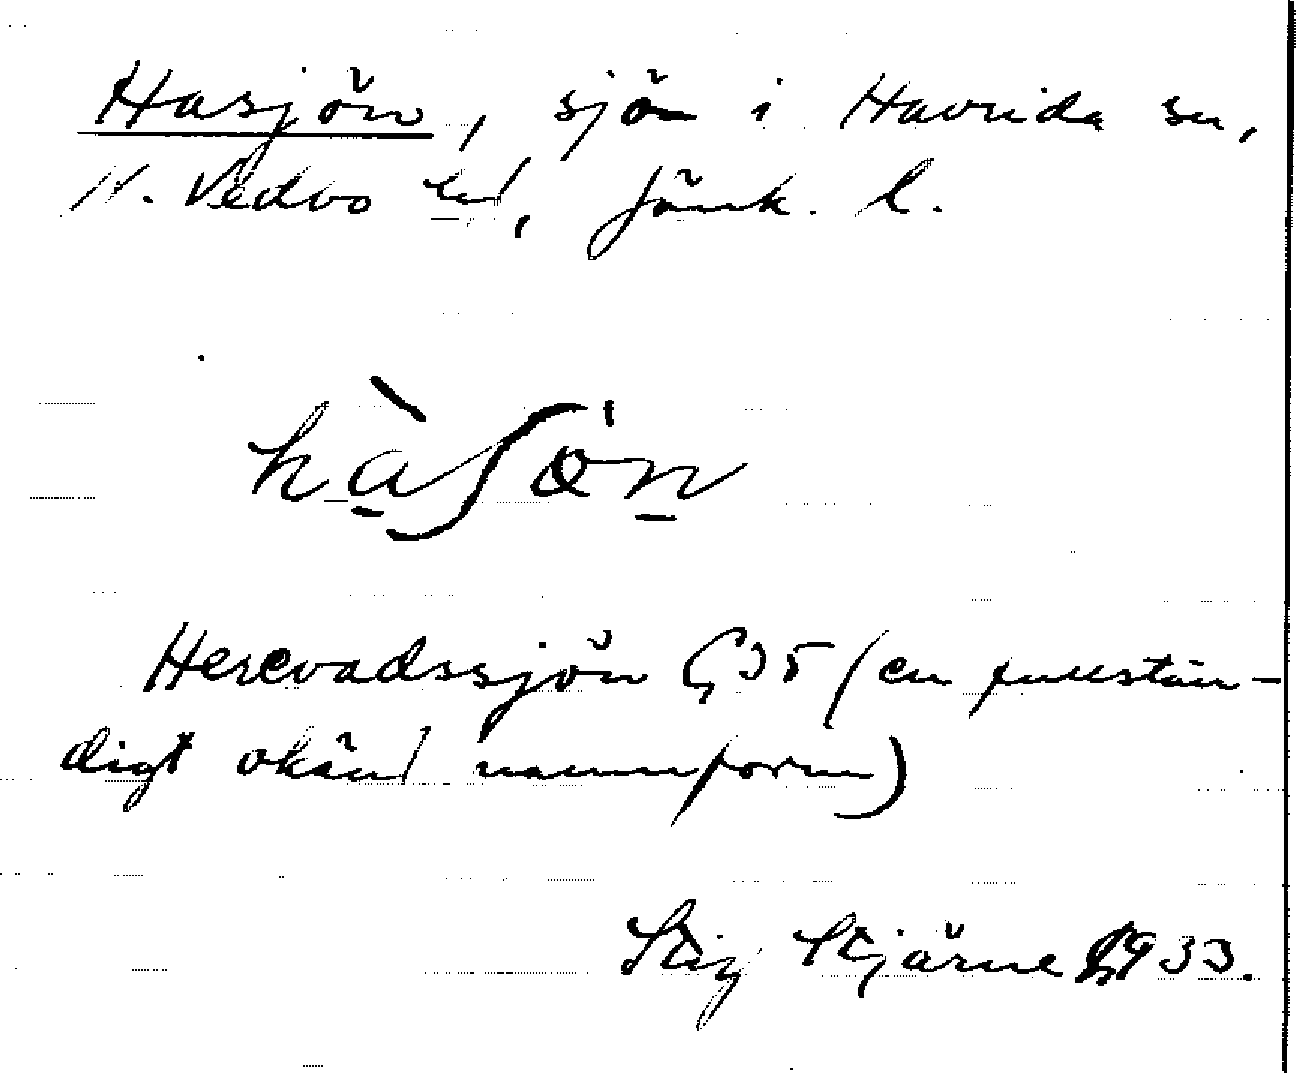 Hasjön, sjö i Haurida sn,
N. Vedbo hd, Jönk. l.
hàʃön
Herevadssjön G35 (en fullstän-
digt okänd namnform)
Stig Stjärne 1933.